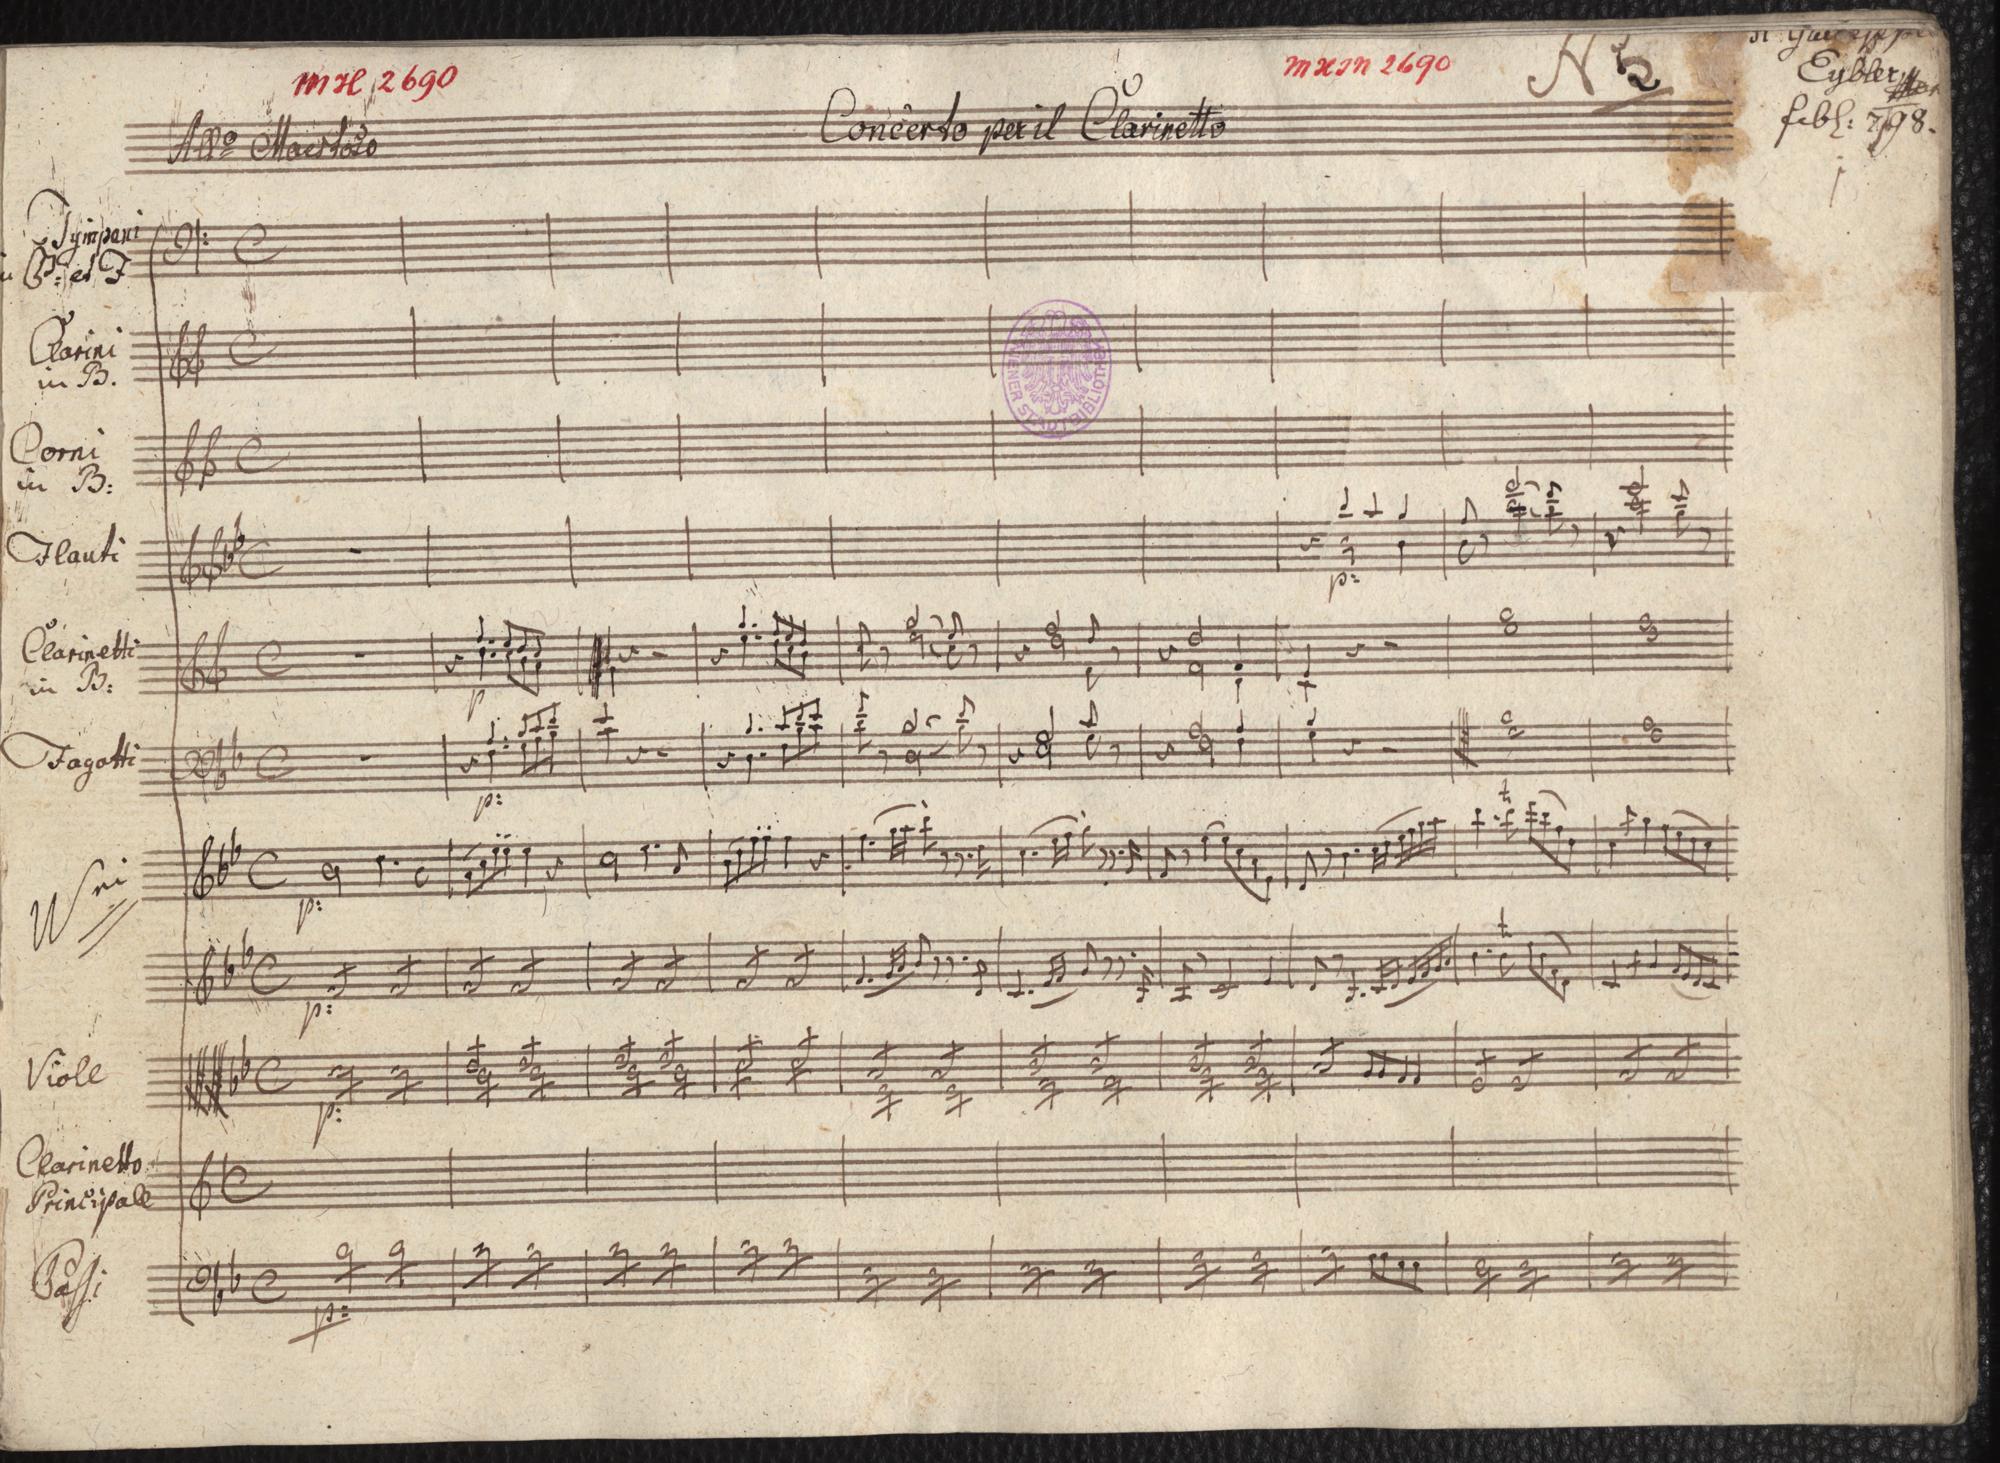 MH 2690
MHM 2690
N 5
di Giuseppe
Eybler
febl: 798.
All:o Maestoso
Concerto per il Clarinetto
Tympani
in B: et F
Clarini
in B.
Corni
in B:
Flauti
Clarinetti
in B:
Fagotti
Vni
Viole
Clarinetto
Principale
Bassi
p:
p
p:
p:
p:
p:
p:
WIENER STADTBIBLIOTHEK